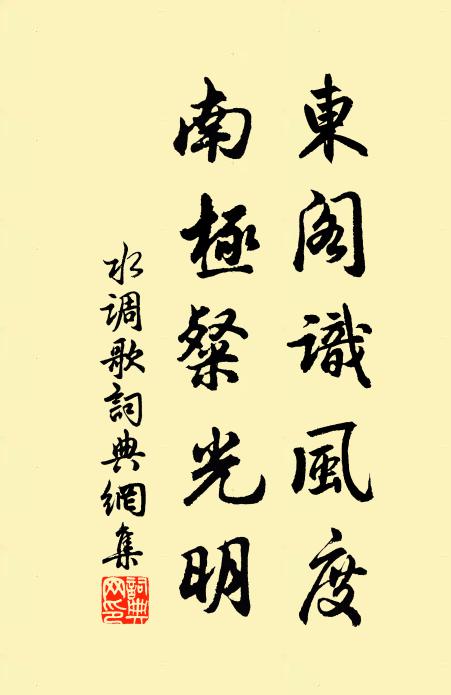 東閣識風度
南極粲光明
水调歌詞典網集
詞典網印